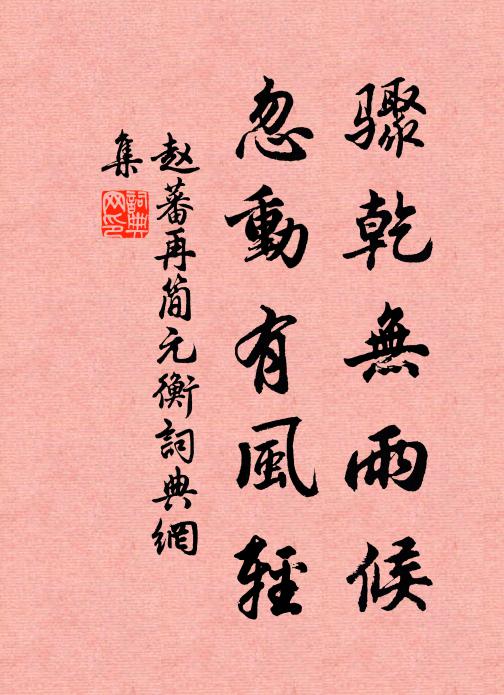 骤乾無雨候
忽動有風輕
赵蕃再简元衡詞典網
集
詞典
网印